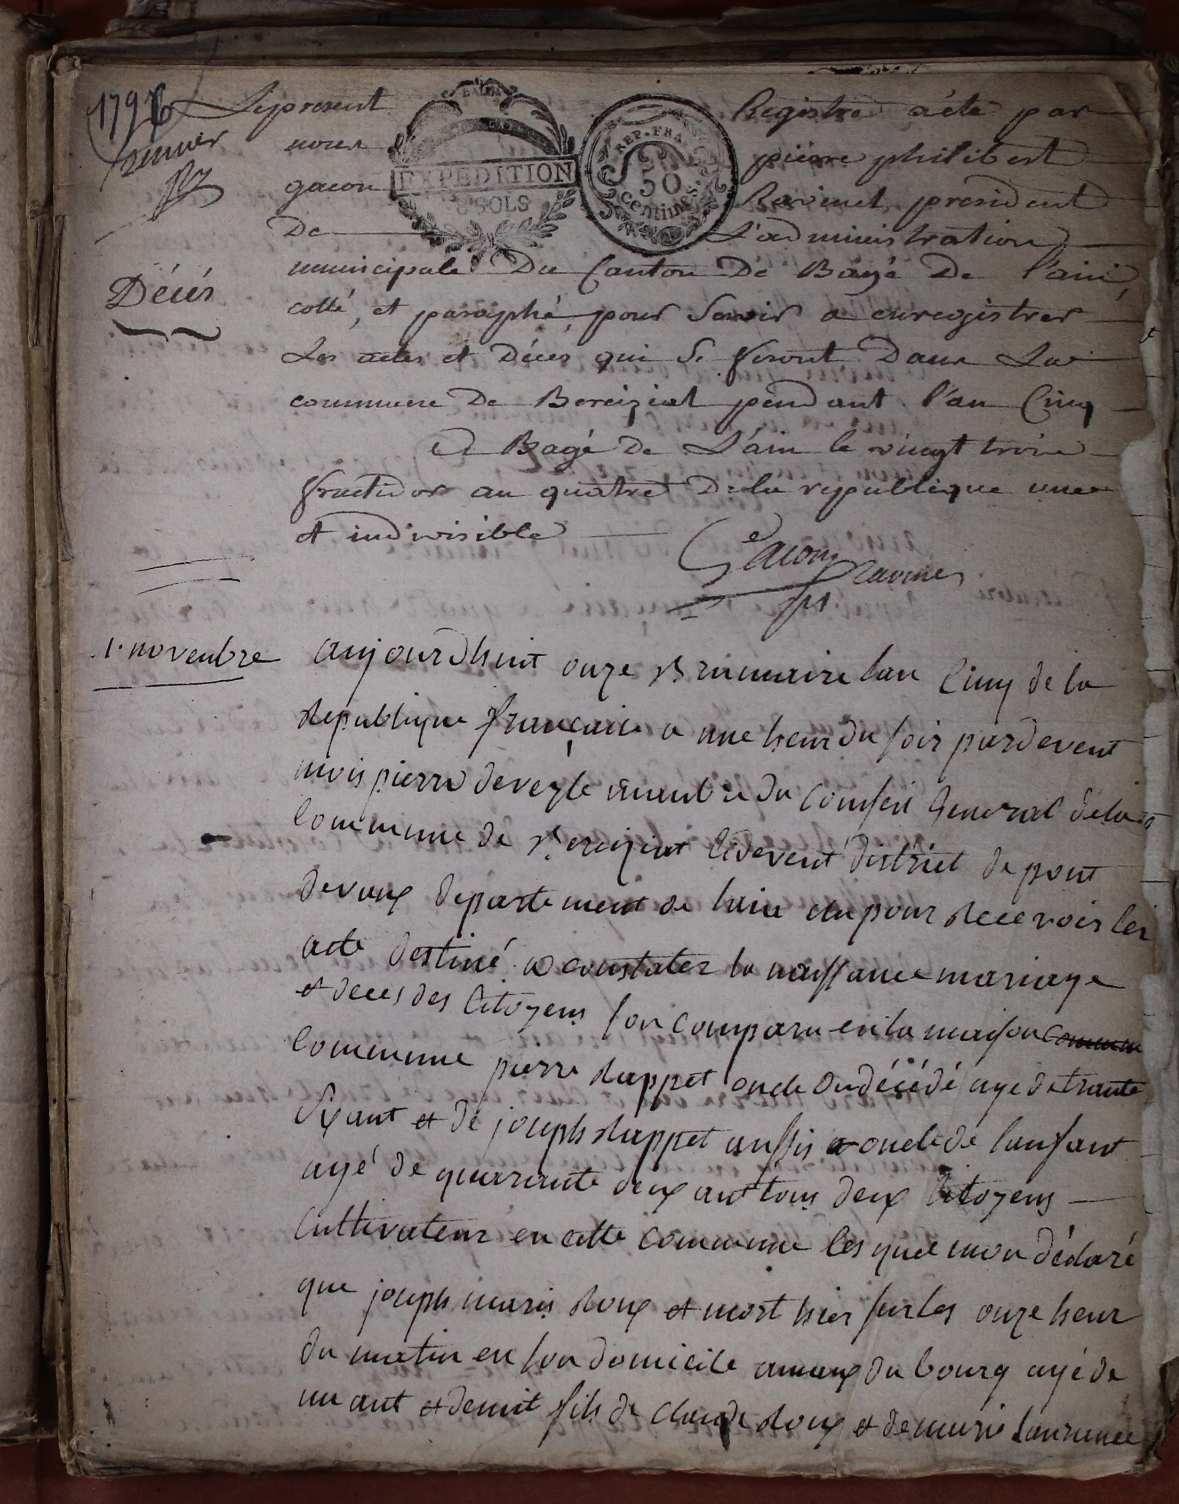 1796
premier
Le present Registre a été par
nous pierre philibert
gacon Ravinet, president
De L'administration
municipale Du Canton De Bagé De l'ain,
collé, et paraphé, pour Servir a enregistrer
Les actes et Décès qui Se feront Dans La
commune De Bereiziat pendant l'an Cinq
A Bagé De L'ain le vingt trois
fructidor an quatre De la republique une
et indivisible
EXPEDITION
SOLS
REP. FRA.
50
centimes
Gacon Ravinet
Décés
1. novembre
aujourdhuit onze Brumaire lan Cinq de la
Republique française a une heur du soir pardevent
mois pierre deveyle membre du Conseil General dela
Commune de Bereiziat Cidevent district de pont
devaux departement de lain elu pour Recevoir les
acte destiné a constater la naissance mariage
et deces des Citoyens son comparu en la maison commun
Commune pierre Rappet oncle du décédé agé de trante
Six ant et de joseph Rappet aussis oncle de lanfant
agé de quarante deux ant tous deux Citoyens
Cultivateur en cette commune les quel mon déclaré
que joseph marie Roux et mort hier sur les onze heur
du matin en son domicile du bourg agé de
un ant et demit fils de Claude Roux et de marie Laurence